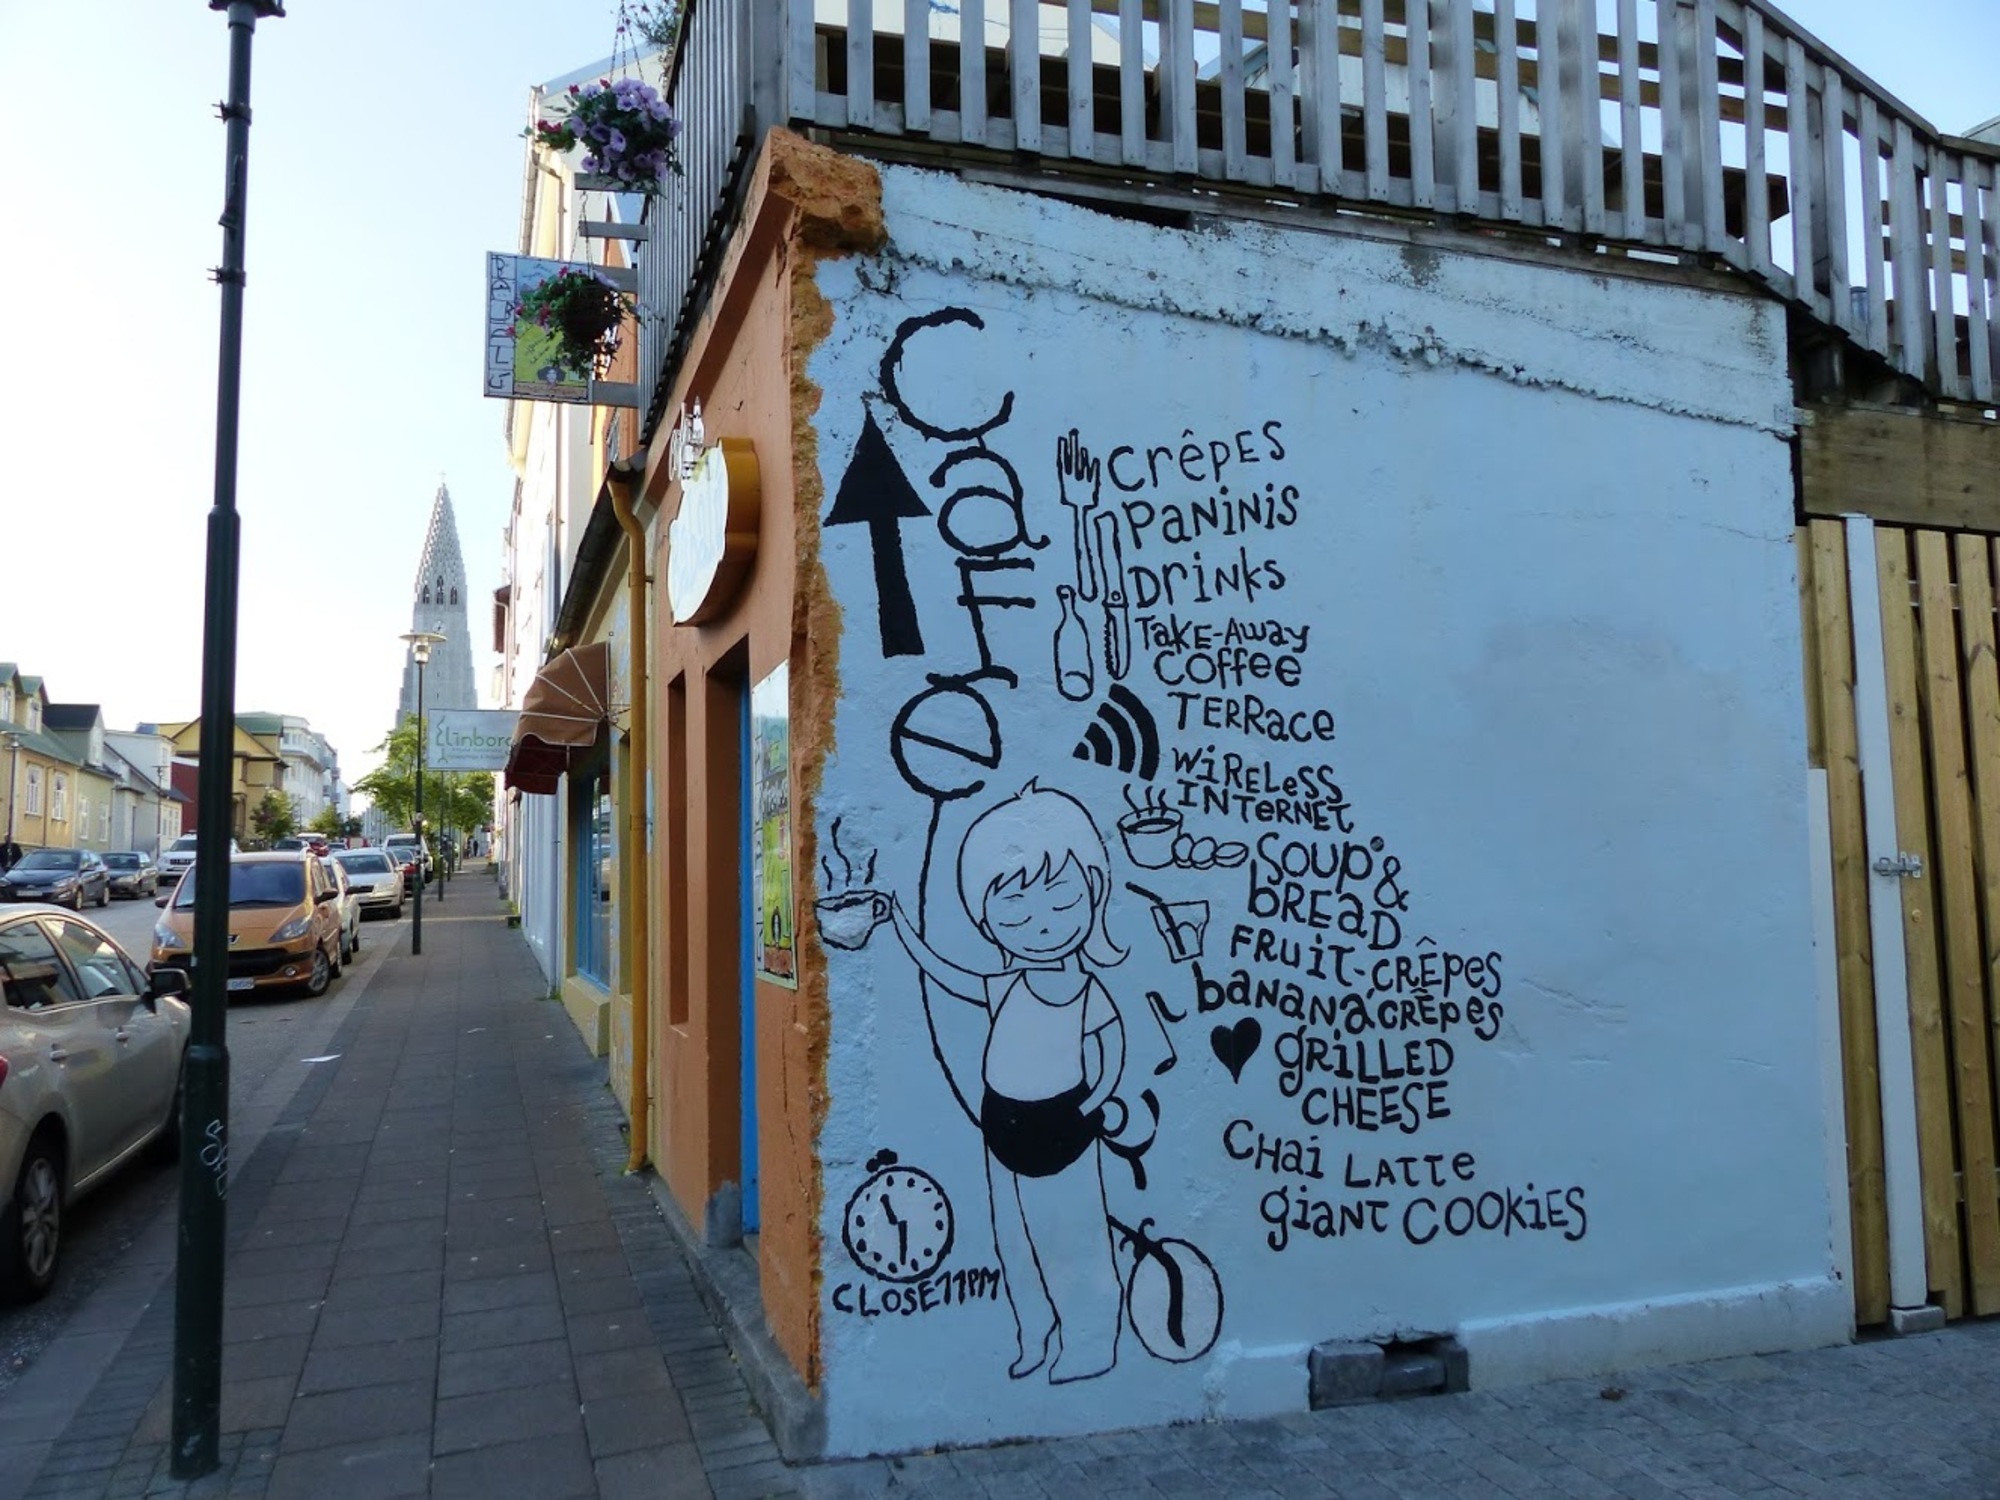 CaFe
crêpes
Paninis
Drinks
Take-Away
Coffee
Terrace
Wireless
Internet
Soup &
Bread
Fruit-crêpes
banana crêpes
grilled
cheese
Chai Latte
giant cookies
CLOSE 11PM
BABALÚ